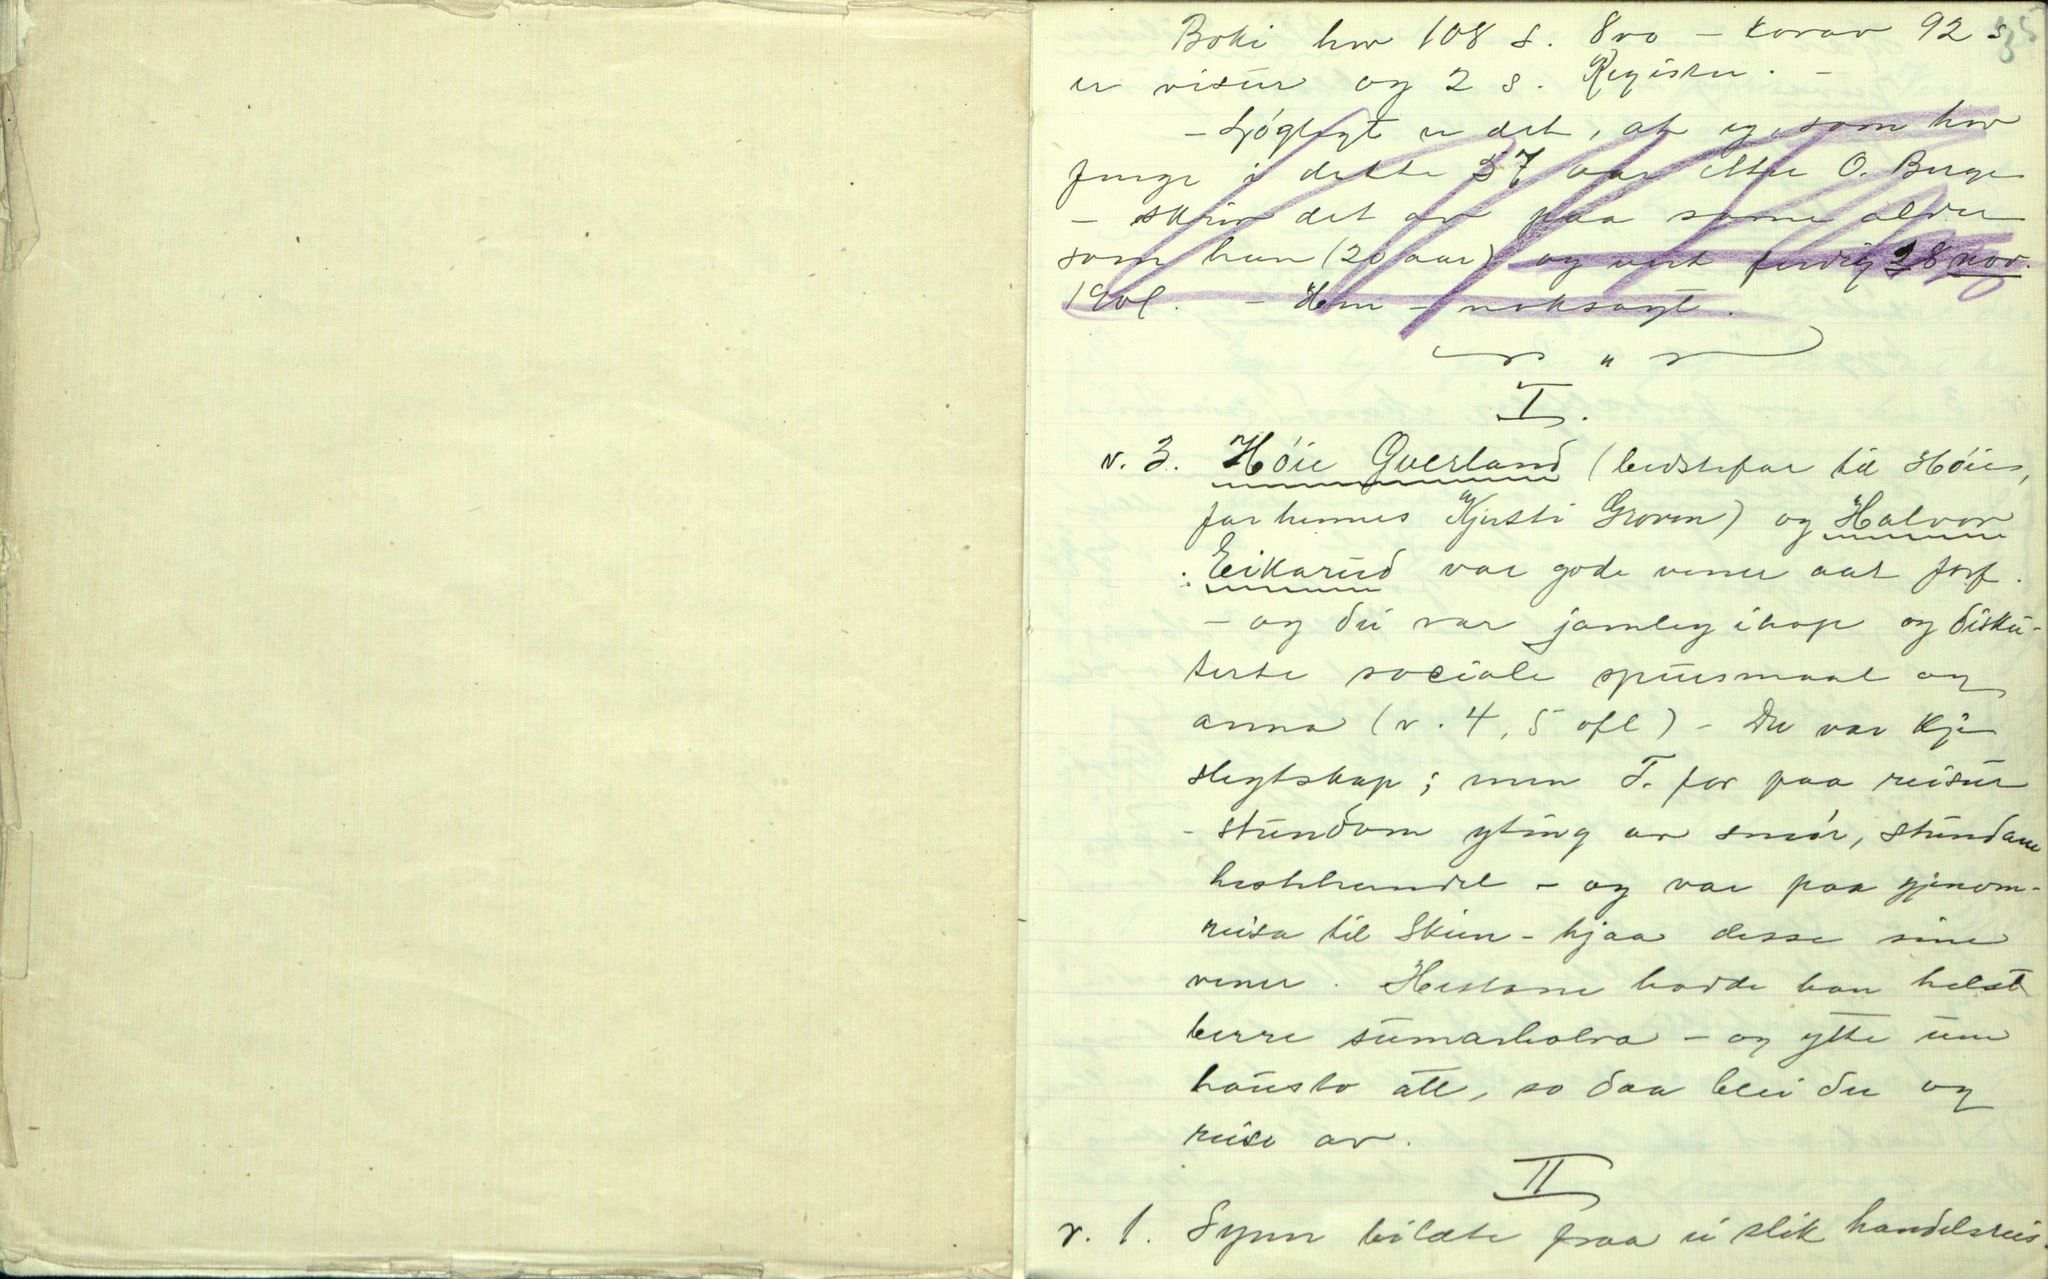 35
Boki hev 108 s. 8vo – korav 92 s.
er visur og 2 s. Register. –
– Høglegt er det, at eg, som hev
funge i dette 57 aar etter O. Berge
– skriv det av paa same alder
som han (20 aar) og vert ferdig 28 nov.
1901. – Hm – noksagt.
I.
v. 3. Höie Qverland (bedstefar til Höie,
far hennes Kjersti Groven) og Halvor
Eikarud var gode vener aat forf.
– og dei var jamleg ihop og disku-
terte sociale spursmaal og
anna (v. 4, 5 ofl) – Der var kje
slegtskap; men T. for paa reisur
– stundom yting av smör, stundom
hestehandel – og var paa gjenom-
reisa til Skien – hjaa desse sine
vener. Hestane hadde han helst
berre sumarhalva – og ytte um
hausto att, so daa blei der og
reise av.
II
v. 1. Syner bilæte fraa ei slik handelsreis-